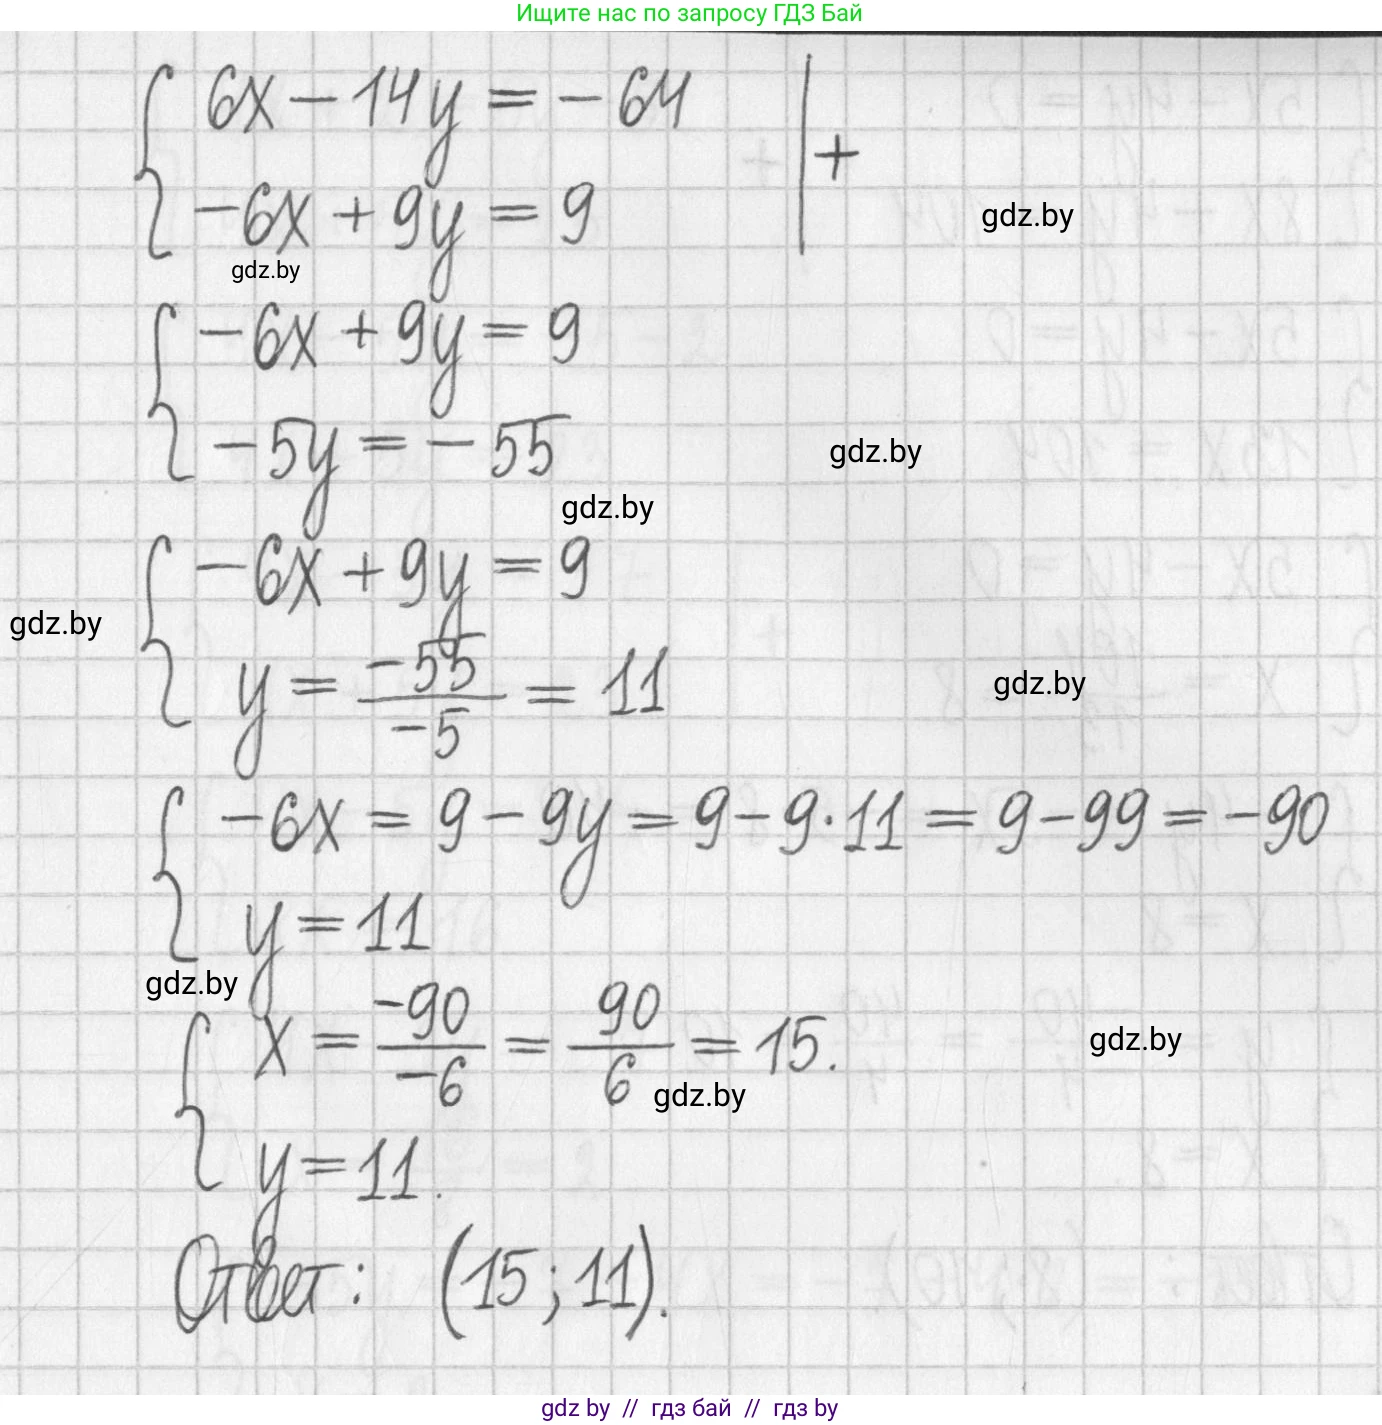 Ищите нас по запросу ГДЗ Бай
6x - 14y = - 64
+
- 6x + 9y = 9
gdz.by
gdz.by
- 6x + 9y = 9
- 5y = - 55
gdz.by
gdz.by
- 6x + 9y = 9
gdz.by
y = -55/-5 = 11
gdz.by
- 6x = 9 - 9y = 9 - 9·11 = 9 - 99 = - 90
y = 11
gdz.by
x = -90/-6 = 90/6 = 15.
gdz.by
gdz.by
y = 11.
Ответ: (15; 11).
gdz by // гдз бай // гдз by